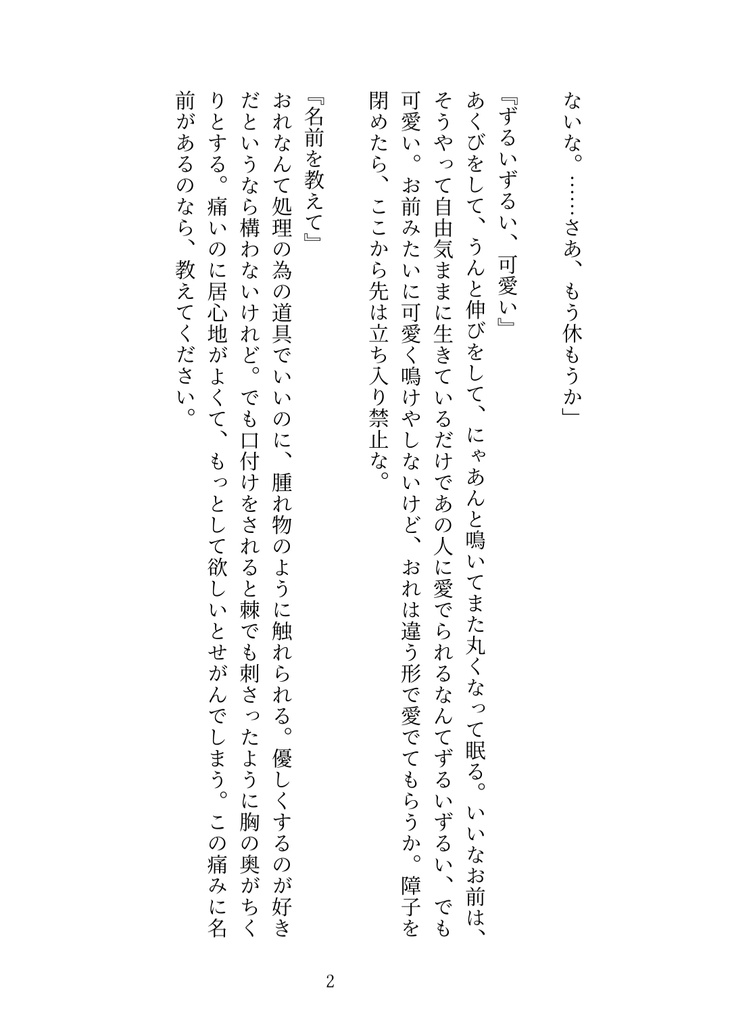 ないな。……さあ、もう休もうか」
『ずるいずるい、可愛い』
あくびをして、うんと伸びをして、にゃあんと鳴いてまた丸くなって眠る。いいなお前は、
そうやって自由気ままに生きているだけであの人に愛でられるなんてずるいずるい、でも
可愛い。お前みたいに可愛く鳴けやしないけど、おれは違う形で愛でてもらうか。障子を
閉めたら、ここから先は立ち入り禁止な。
『名前を教えて』
おれなんて処理の為の道具でいいのに、腫れ物のように触れられる。優しくするのが好き
だというなら構わないけれど。でも口付けをされると棘でも刺さったように胸の奥がちく
りとする。痛いのに居心地がよくて、もっとして欲しいとせがんでしまう。この痛みに名
前があるのなら、教えてください。
2